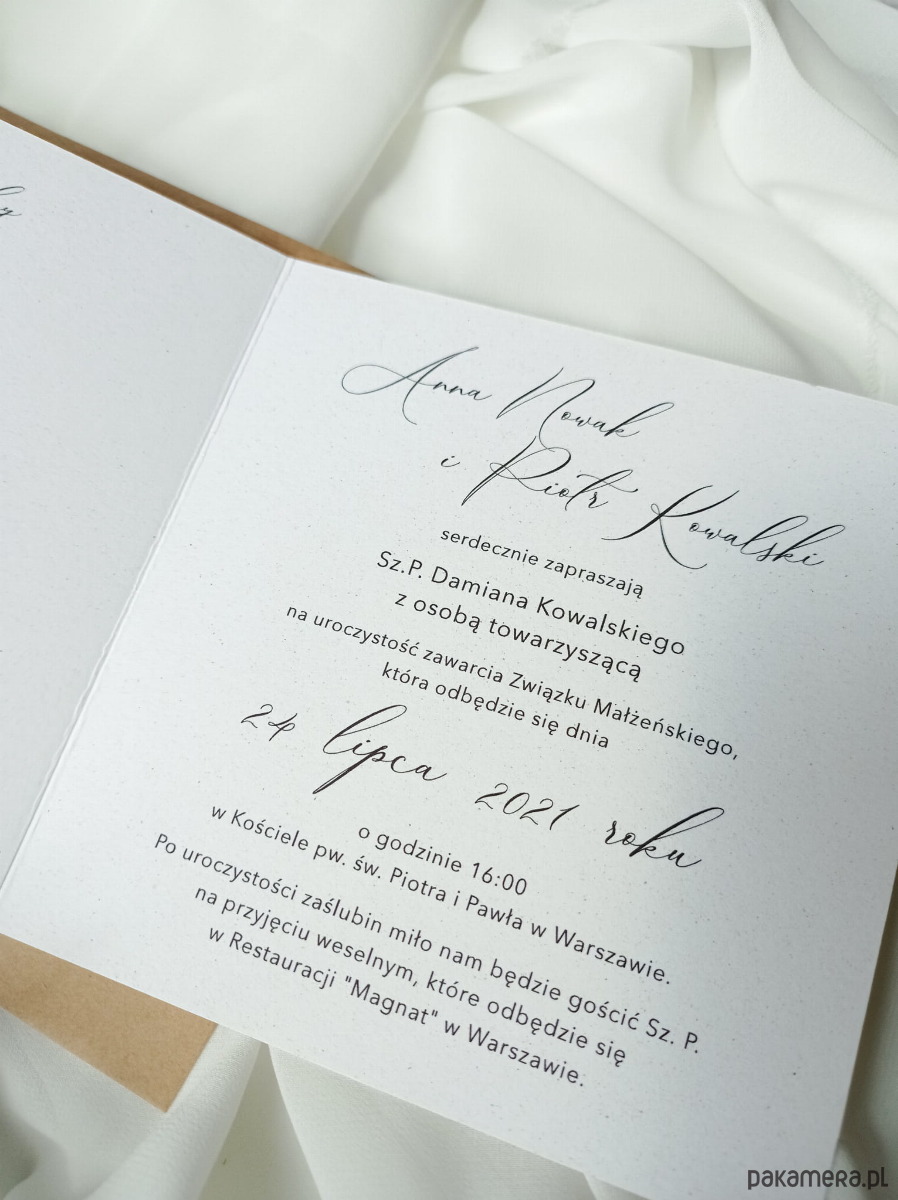 Anna Nowak
i Piotr Kowalski
serdecznie zapraszają
Sz.P. Damiana Kowalskiego
z osobą towarzyszącą
na uroczystość zawarcia Związku Małżeńskiego,
która odbędzie się dnia
24 lipca 2021 roku
o godzinie 16:00
w Kościele pw. św. Piotra i Pawła w Warszawie.
Po uroczystości zaślubin miło nam będzie gościć Sz. P.
na przyjęciu weselnym, które odbędzie się
w Restauracji "Magnat" w Warszawie.
pakamera.pl